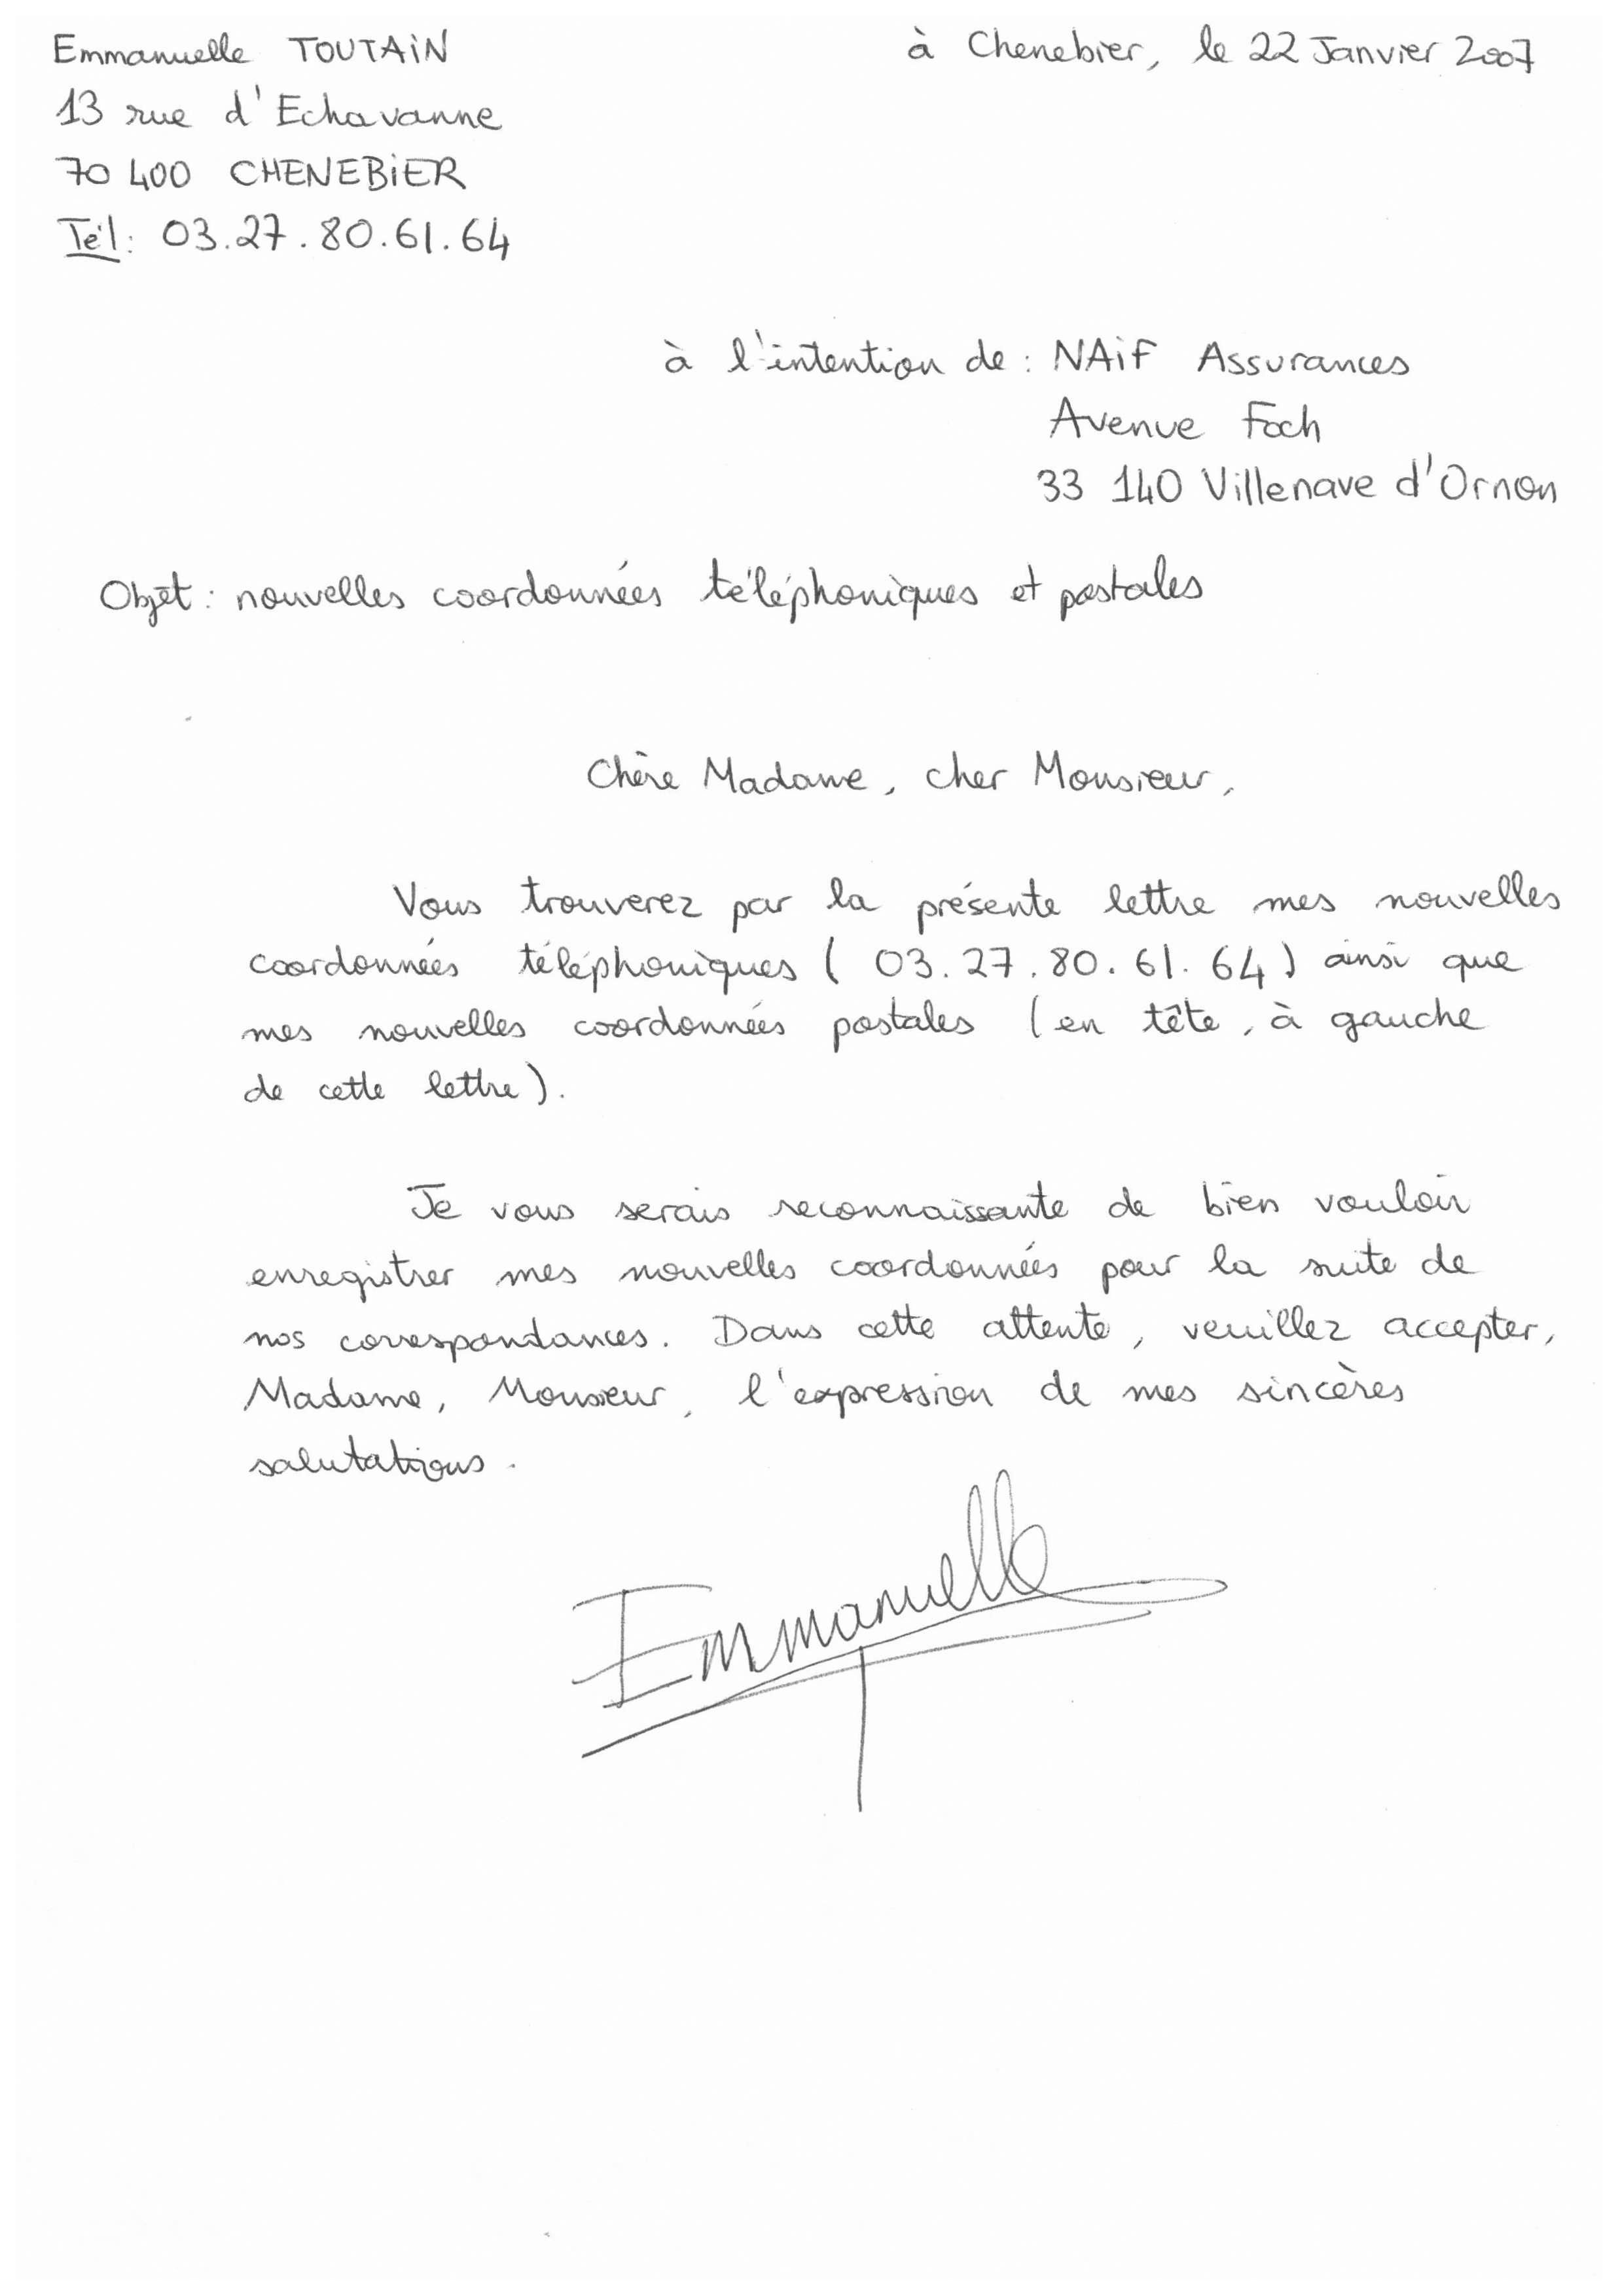 Emmanuelle TOUTAIN
à Chenebier, le 22 Janvier 2007
13 rue d'Echavanne
70 400 CHENEBIER
Tél : 03.27.80.61.64
à l'intention de : NAIF Assurances
Avenue Foch
33 140 Villenave d'Ornon
Objet : nouvelles coordonnées téléphoniques et postales
Chère Madame, cher Monsieur,
Vous trouverez par la présente lettre mes nouvelles
coordonnées téléphoniques ( 03.27.80.61.64 ) ainsi que
mes nouvelles coordonnées postales (en tête, à gauche
de cette lettre).
Je vous serais reconnaissante de bien vouloir
enregistrer mes nouvelles coordonnées pour la suite de
nos correspondances. Dans cette attente, veuillez accepter,
Madame, Monsieur, l'expression de mes sincères
salutations.
Emmanuelle